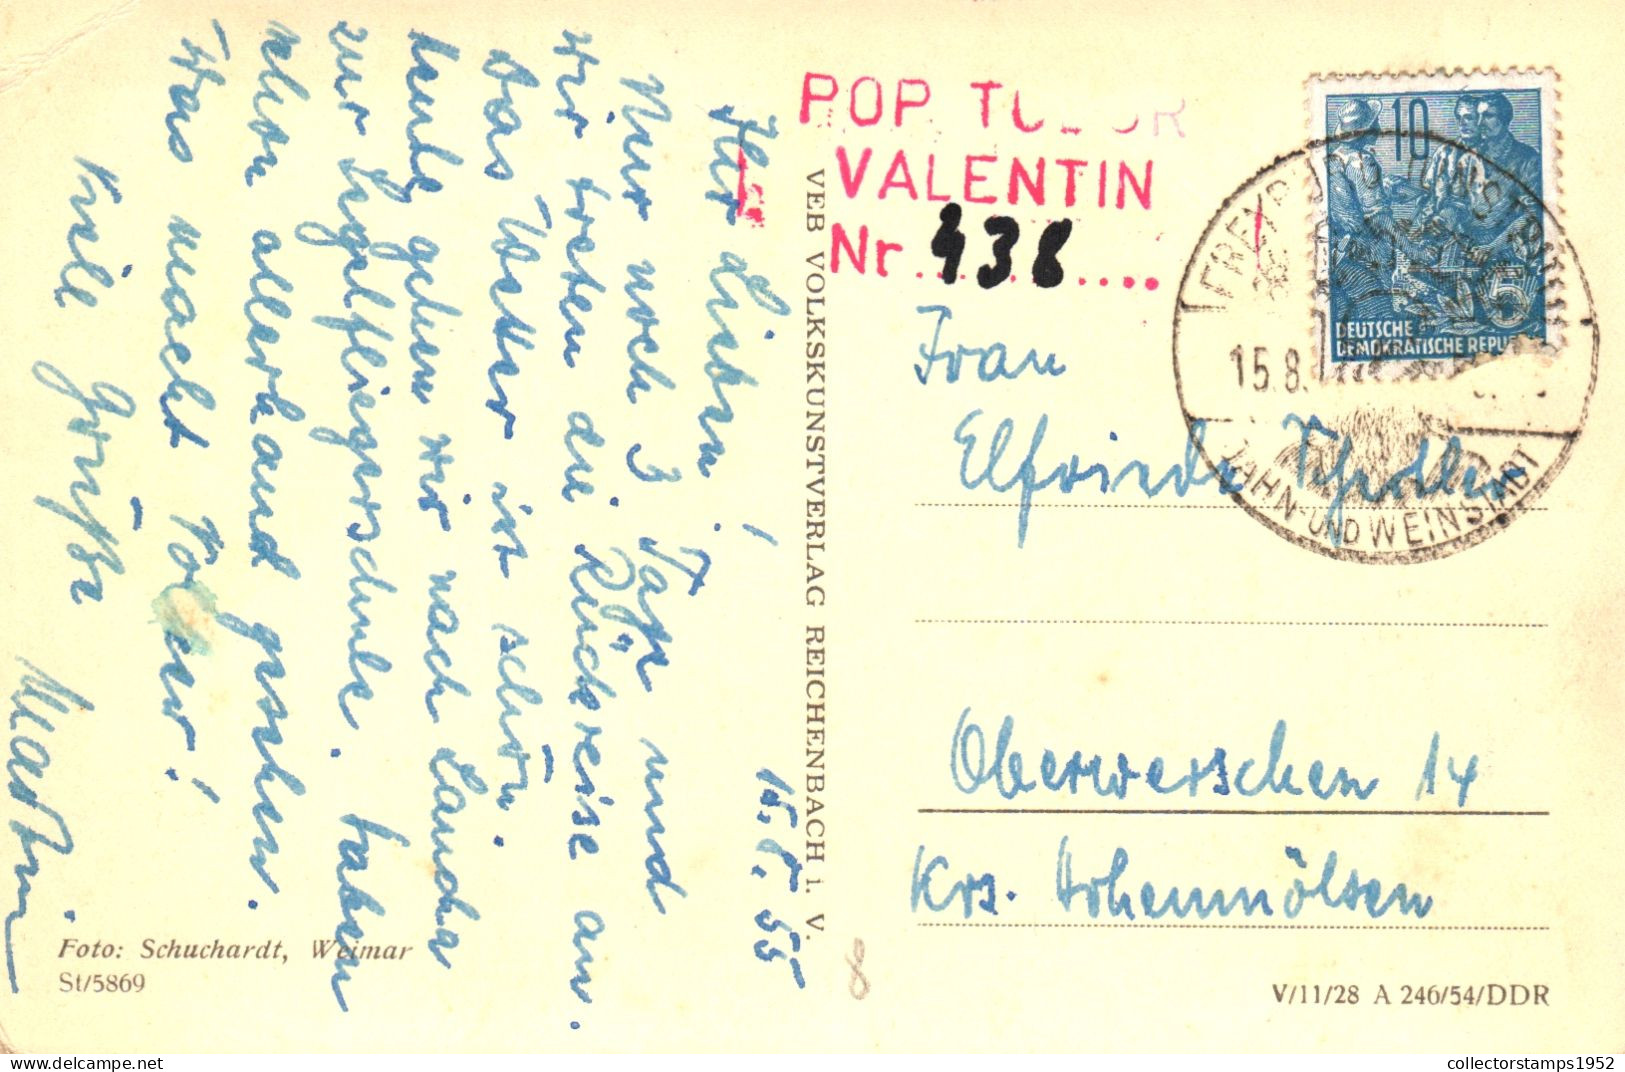 15.8.55
Ihr Lieben!
Nur noch 3 Tage und
wir treten die Rückreise an.
Das Wetter ist schön.
heute gehen wir nach Laucha
zur Segelfliegerschule. haben
schon allerhand gesehen.
Was macht
Viele Grüße
Martin
Foto: Schuchardt, Weimar
St/5869
VEB VOLKSKUNSTVERLAG REICHENBACH i. V.
8
POP TUDOR
VALENTIN
Nr. 438
10
5
DEUTSCHE
DEMOKRATISCHE REPUB
FREYBURG (UNSTRUT)
15.8.
JAHN- UND WEINSTADT
Frau
Elfriede
Oberwerschen 14
Krs. Hohenmölsen
V/11/28 A 246/54/DDR
collectorstamps1952